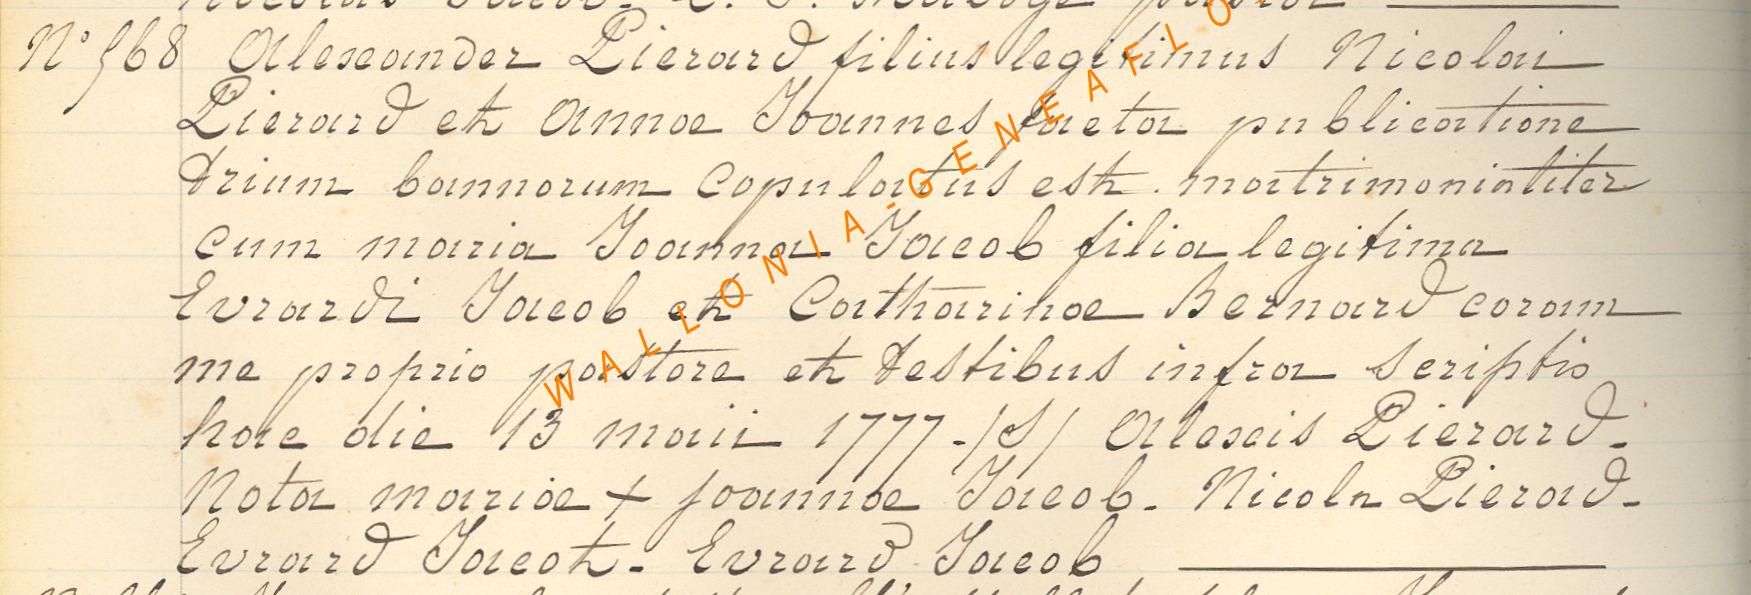 Nicolas Jacob. pastor
N° 568 Alexander Pierard filius legitimus Nicolai
Pierard et Annae Joannes facta publicatione
trium bannorum copulatus est. matrimonialiter
cum maria Joanna Jacob filia legitima
Evrardi Jacob et Catharinae Bernard coram
me proprio pastore et testibus infra scriptis
hac die 13 maii 1777-/S/ Alexis Pierard.
Nota mariae + joannae Jacob. Nicola Pierad.
Evrard Jacot. Evrard Jacob
WALLONIA-GENEAFLO